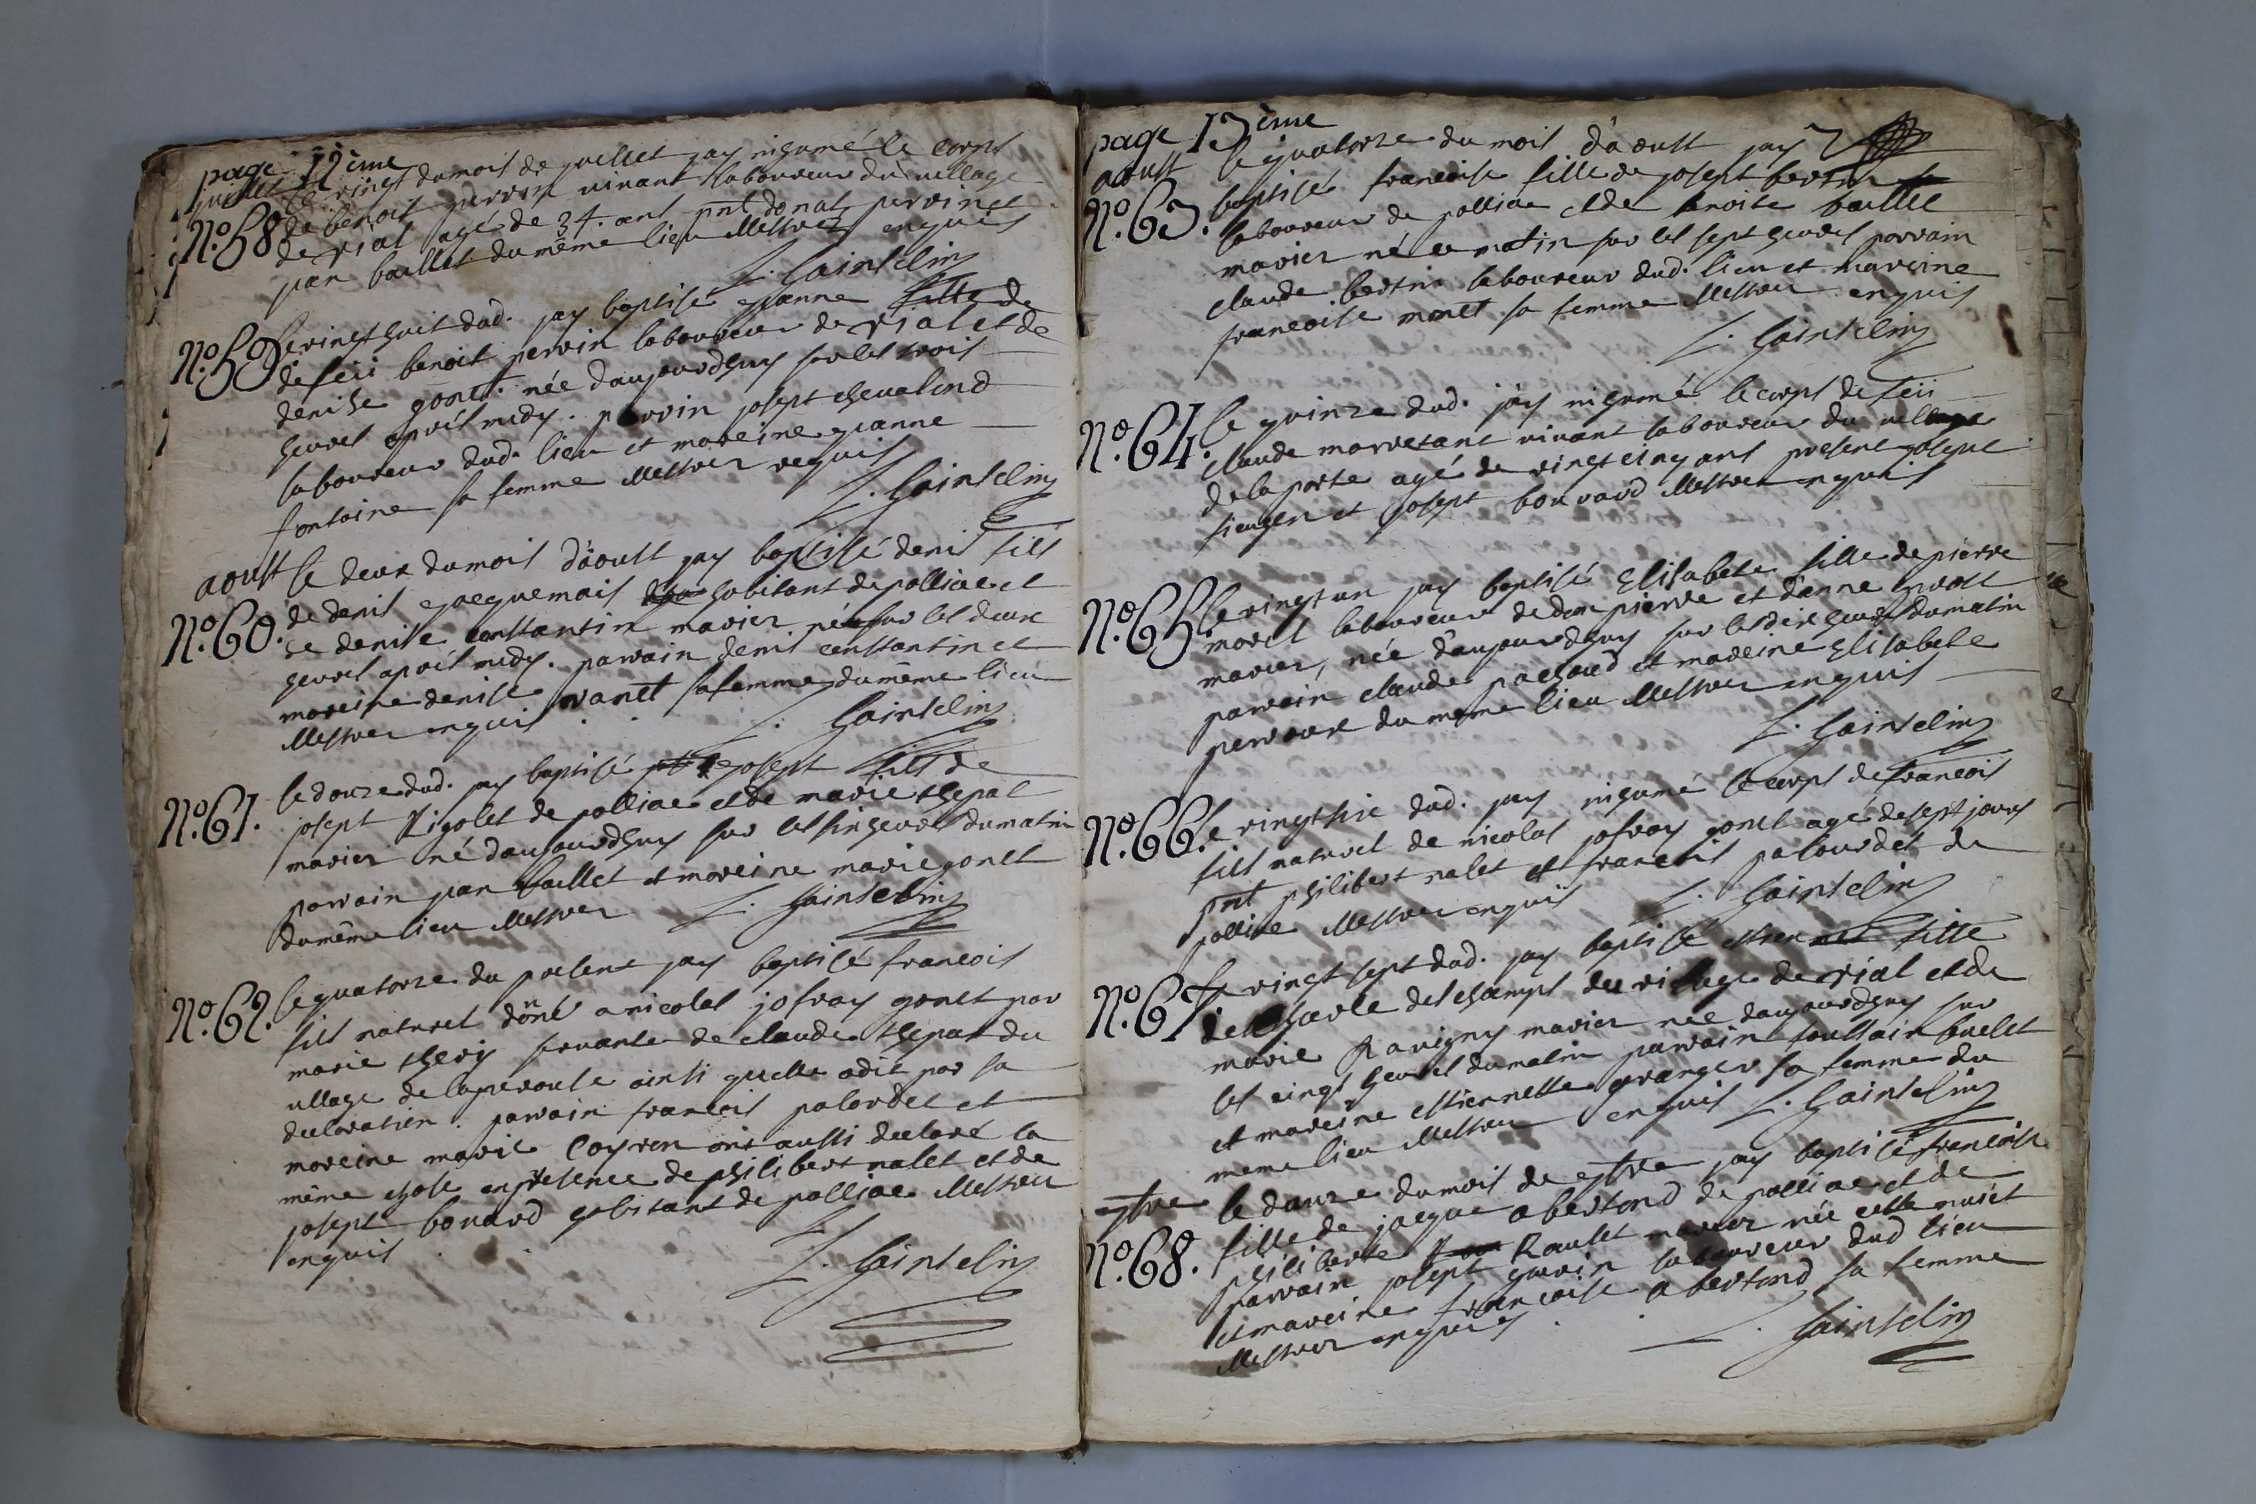 page 12ème
juillet le vingt du mois de juillet jay inhumé le corps
No. 58 de benoit perrin vivant laboureur du village
de rial agé de 34. ans pnt donat perrin et
jean baillet du même lieu Illestrez enquis
L. Gainselin
No. 59 le vingt huit dud. jay baptisé jeanne fille de
defeu benoit perrin laboureur de rial et de
denise gonet. née daujourdhuy sur les trois
heures aprés midy. parrin josept chevalend
laboureur dud. lieu et mareine jeanne
fontaine sa femme Illestrez requis
L. Gainselin
aoust le deux du mois d'àoust jay baptisé denis fils
No. 60. de denis jacquemais habitant de polliac et
de denise constantin marier né sur les deux
heures aprés midy. parrain denis constantin et
mareine denise vanet sa femme du même lieu
Illestrez enquis
L. Gainselin
No. 61. le douze dud. jay baptisé josept fils de
josept Rigolet de polliac et de marie thepat
marier né daujourdhuy sur les six heures du matin
parrain jean baillet et mareine marie gonet
du même lieu Illestrez
L. Gainselin
No. 62. le quatorze du present jay baptisé francois
fils naturel donné a nicolas jofray gonet par
marie thevy servante de claude thepat du
village de laperouse ainsi quelle a dit par sa
declaration. parrain francois palordet et
mareine marie Coyron ont aussi declaré la
même chose en présence de philibert nalet et de
josept bonard habitant de polliac Illestrez
enquis
L. Gainselin
page 13ème
aoust le quatorze du mois d'àoust jay
No. 63. baptisé francoise fille de josept bertin
laboureur de polliac et de benoite baillet
marier né ce matin sur les sept heures parrain
claude bertin laboureur dud. lieu et mareine
francoise monet sa femme Illestrez enquis
L. Gainselin
No. 64. le quinze dud. jay inhumé le corps de feu
claude marvesant vivant laboureur du village
de la porte agé de vingt cinq ans present josept
et josept bonnard Illestrez enquis
No. 65 le vingt un jay baptisé Elisabete fille de pierre
morel laboureur de dom pierre et danne
marier, née daujourdhuy sur les dix heures du matin
parrain claude pachoud et mareine Elisabete
perroux du meme lieu Illestrez enquis
L. Gainselin
No. 66. le vingt six dud. jay inhumé le corps de francois
fils naturel de nicolas jofray gonet agé de sept jours
pnt philibert nalet et francois palourdet de
polliac Illestrez enquis
L. Gainselin
No. 67. le vingt sept dud. jay baptisé fille
de Charle deschamps du village de rial et de
marie Ravigny marier née daujourdhuy sur
les cinq heures du matin parrain toussain buelet
et mareine estiennette granger sa femme du
meme lieu Illestrez enquis
L. Gainselin
7bre le douze du mois de 7bre jay baptisé francoise
No. 68. fille de jacque abertond de polliac et de
philiberte Raulet marier née cette nuict
parrain josept guerin laboureur dud lieu
et mareine francoise abertond sa femme
Illestrez enquis
L. Gainselin